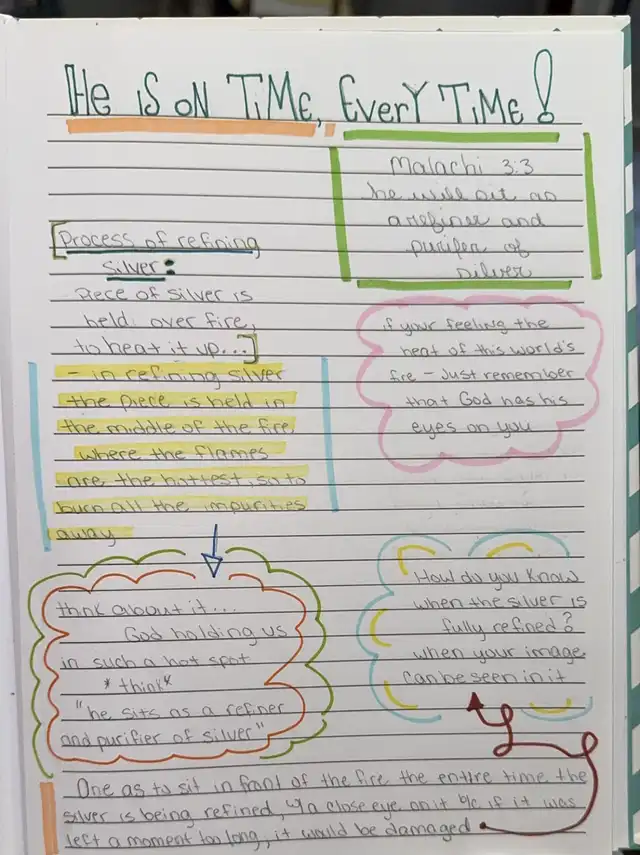 He is on Time, Every Time!
Malachi 3:3
he will sit as
a refiner and
purifer of
silver
[Process of refining
silver:
Piece of silver is
held over fire,
to heat it up...]
- in refining silver
the piece is held in
the middle of the fire
where the flames
are the hottest, so to
burn all the impurities
away
if your feeling the
heat of this world's
fire - Just remember
that God has his
eyes on you
think about it...
God holding us
in such a hot spot
*think*
"he sits as a refiner
and purifier of silver"
How do you know
when the silver is
fully refined?
when your image
can be seen in it
One as to sit in front of the fire the entire time the
silver is being refined, w/a close eye on it b/c if it was
left a moment too long, it would be damaged